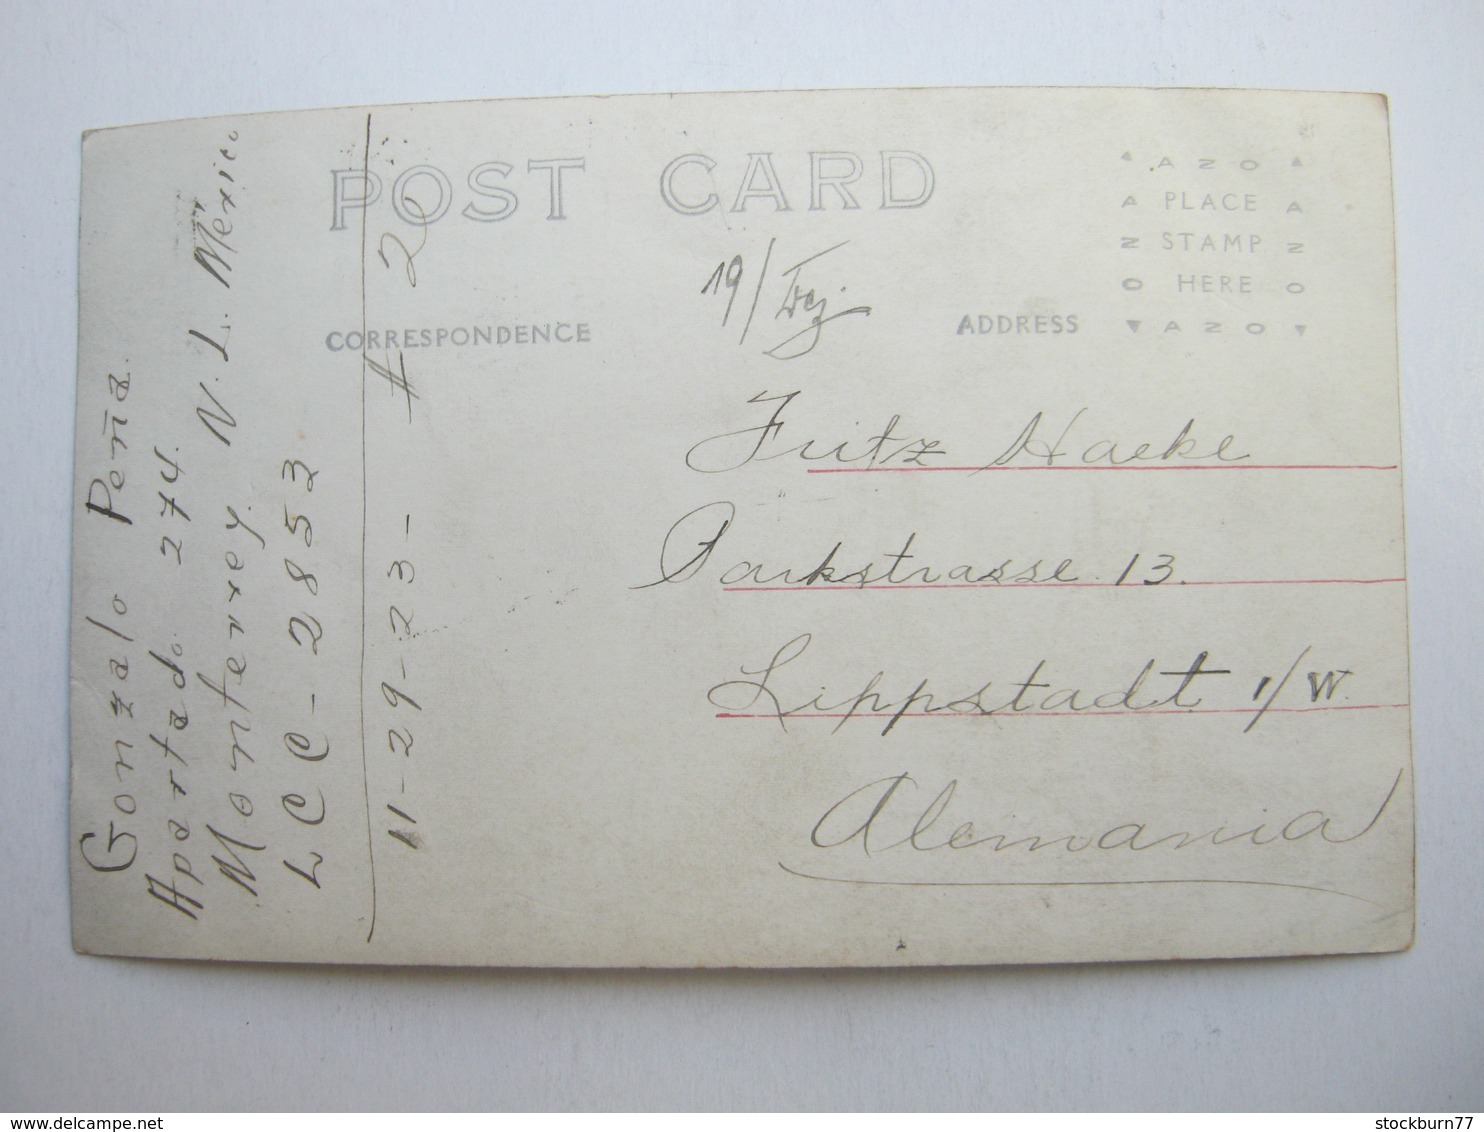 POST CARD
CORRESPONDENCE
ADDRESS
AZO
A PLACE A
Z STAMP Z
O HERE O
AZO
Gonzalo Peña.
Apartado. 274.
Monterrey. N. L. México
LCC-2853
11-29-23- # 20
19/
Fritz Hacke
Parkstrasse 13.
Lippstadt i/W.
Alemania
stockburn77